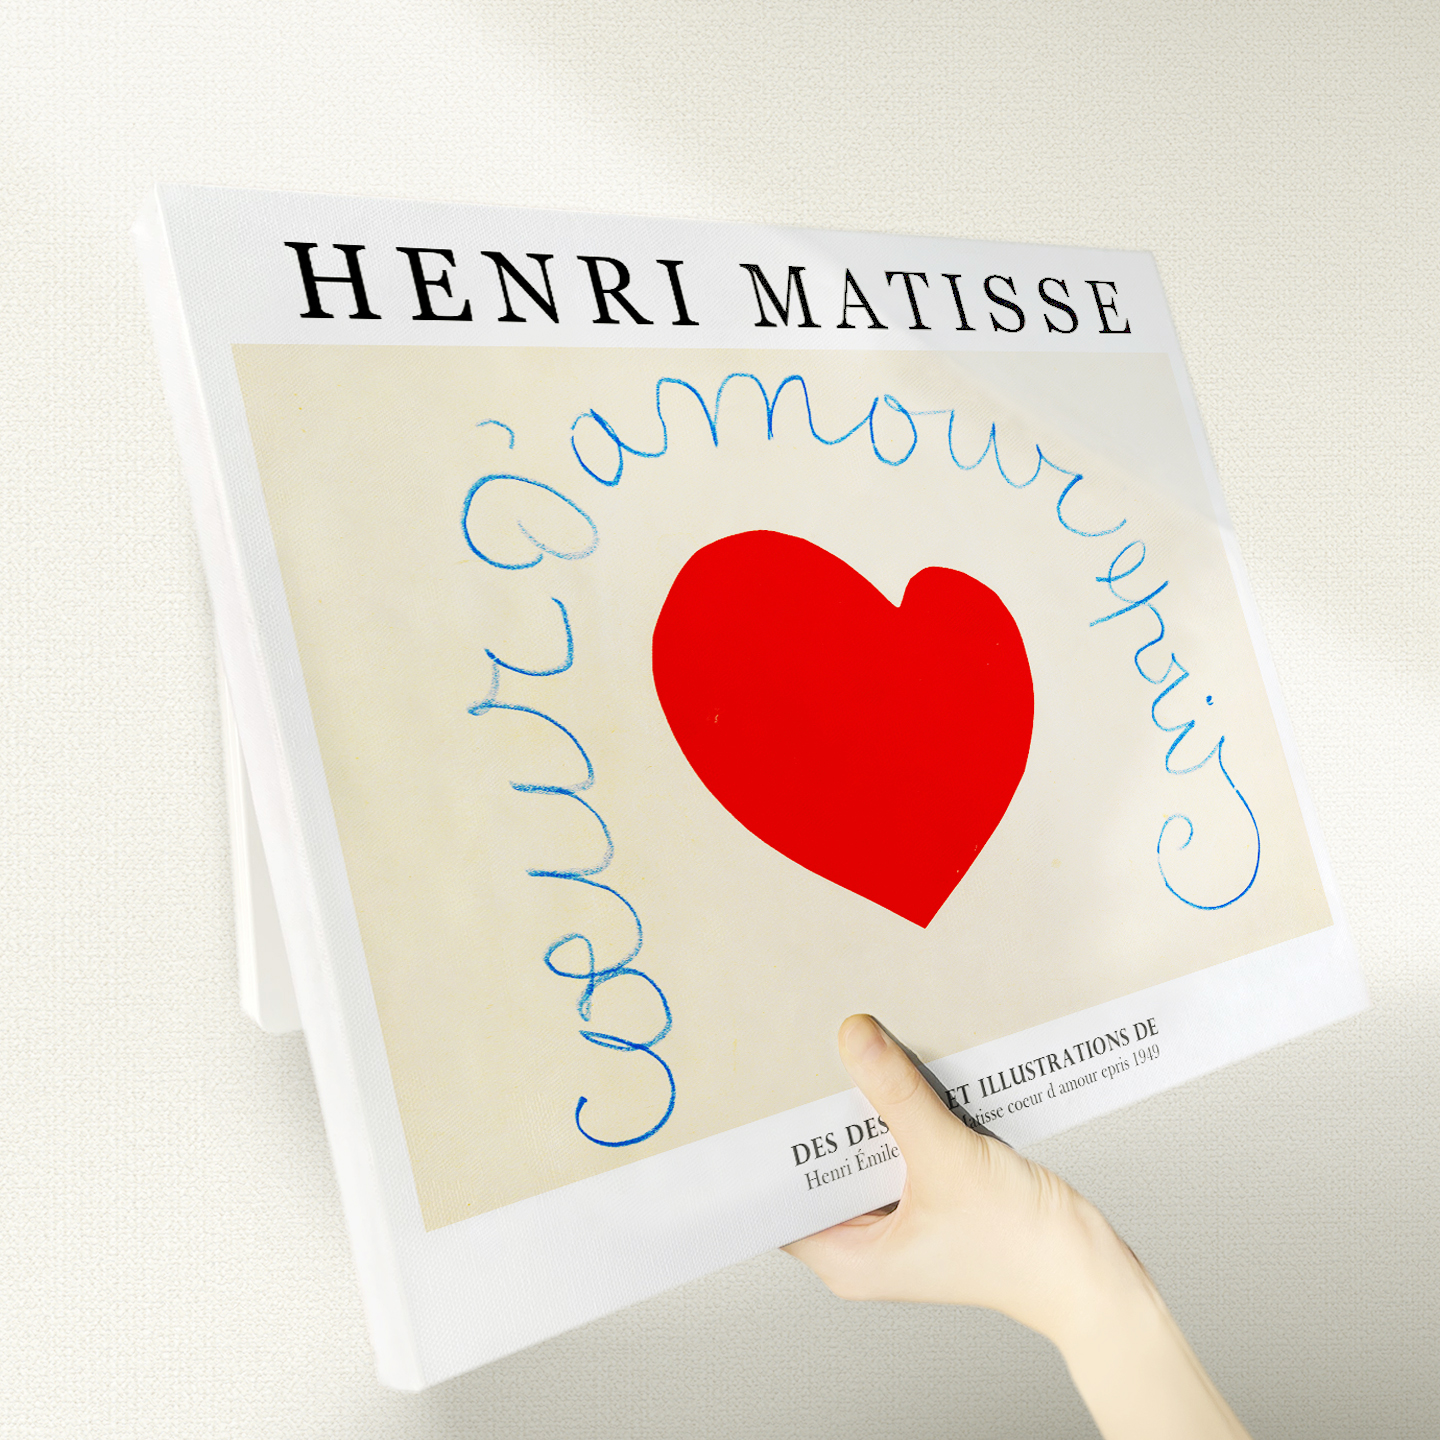 HENRI MATISSE
coeur d'amour epris
DES DES ET ILLUSTRATIONS DE
Henri Émile Matisse coeur d amour epris 1949